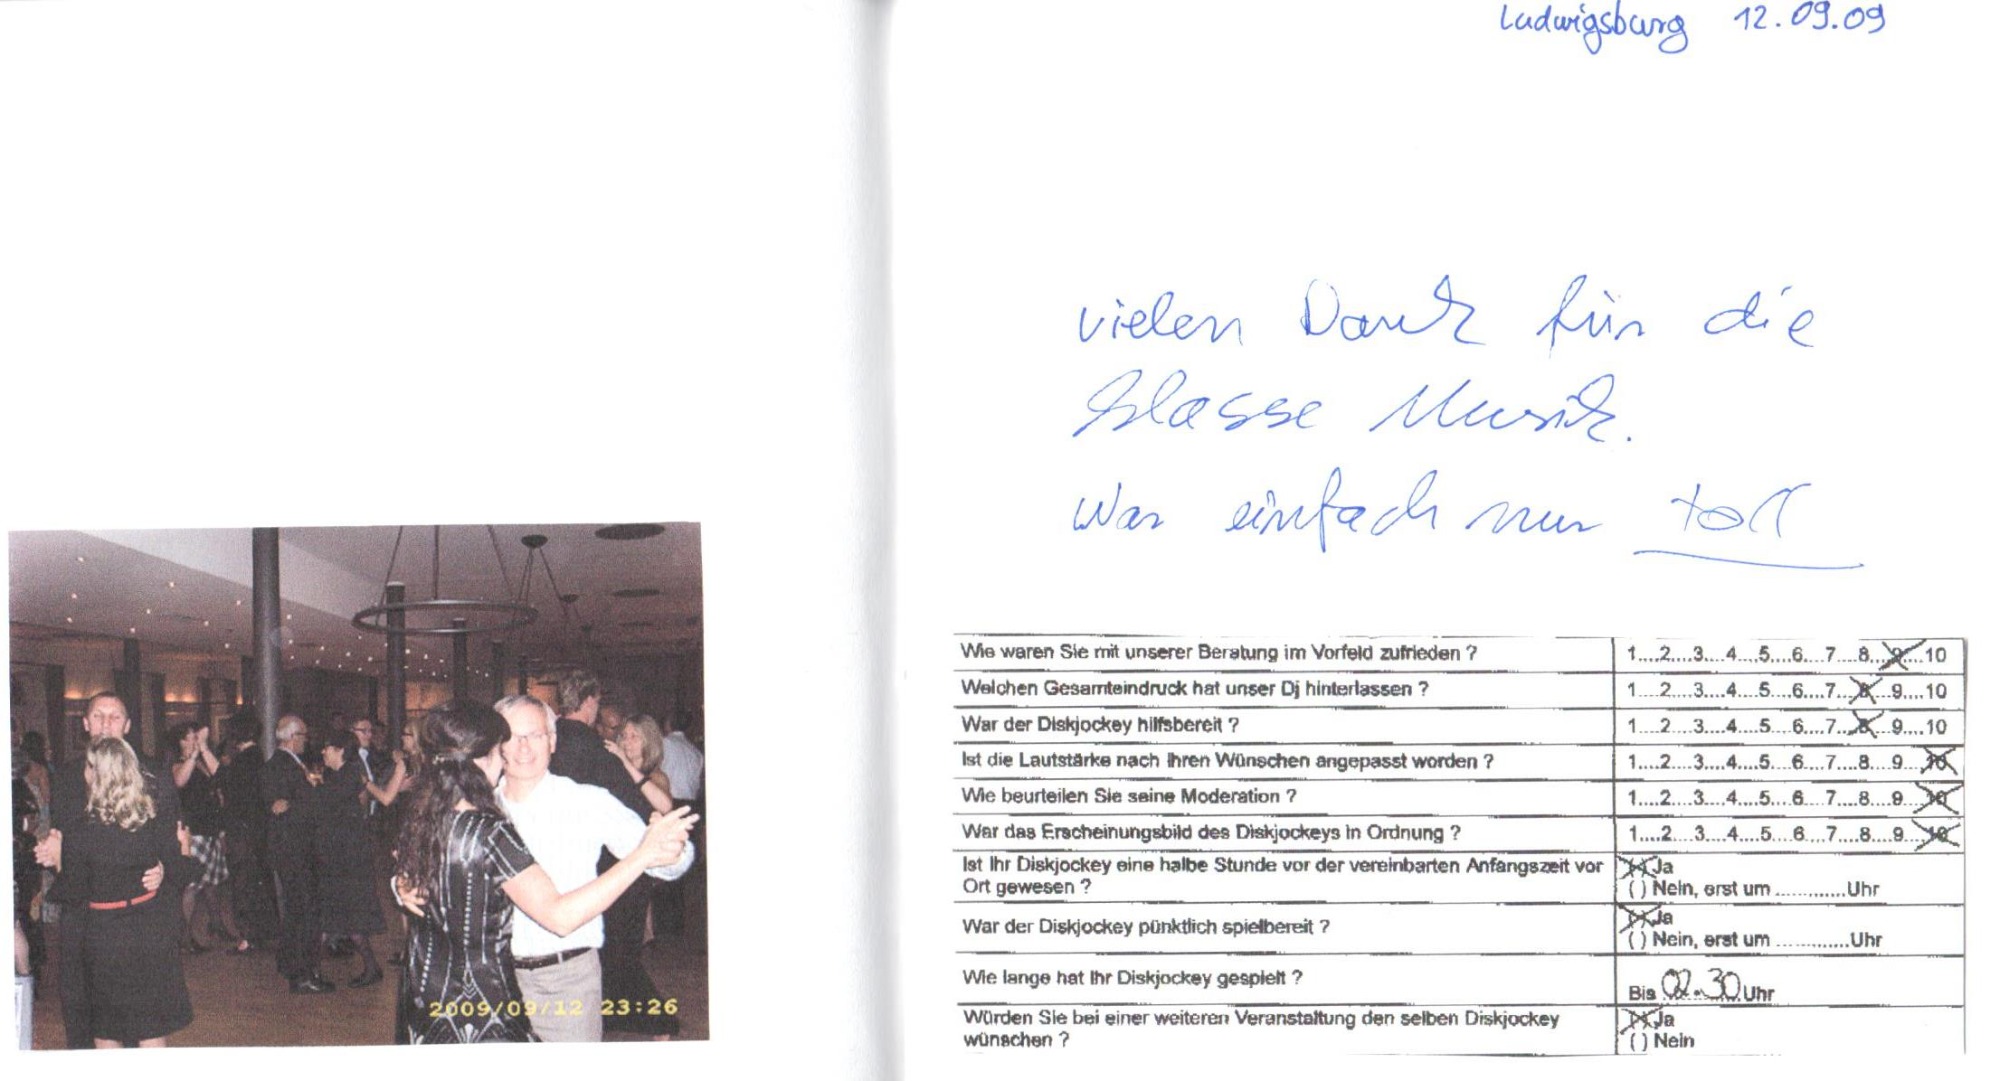 Ludwigsburg 12.09.09
vielen Dank für die
klasse Musik.
War einfach nur toll
Wie waren Sie mit unserer Beratung im Vorfeld zufrieden ? 1....2....3....4....5....6....7....8....9....10
Welchen Gesamteindruck hat unser Dj hinterlassen ? 1....2....3....4....5....6....7....8....9....10
War der Diskjockey hilfsbereit ? 1....2....3....4....5....6....7....8....9....10
Ist die Lautstärke nach Ihren Wünschen angepasst worden ? 1....2....3....4....5....6....7....8....9....10
Wie beurteilen Sie seine Moderation ? 1....2....3....4....5....6....7....8....9....10
War das Erscheinungsbild des Diskjockeys in Ordnung ? 1....2....3....4....5....6....7....8....9....10
Ist Ihr Diskjockey eine halbe Stunde vor der vereinbarten Anfangszeit vor
Ort gewesen ?
(X) Ja
( ) Nein, erst um ............Uhr
War der Diskjockey pünktlich spielbereit ?
(X) Ja
( ) Nein, erst um .............Uhr
Wie lange hat Ihr Diskjockey gespielt ?
Bis 02.30 Uhr
Würden Sie bei einer weiteren Veranstaltung den selben Diskjockey
wünschen ?
(X) Ja
( ) Nein
2009/09/12 23:26